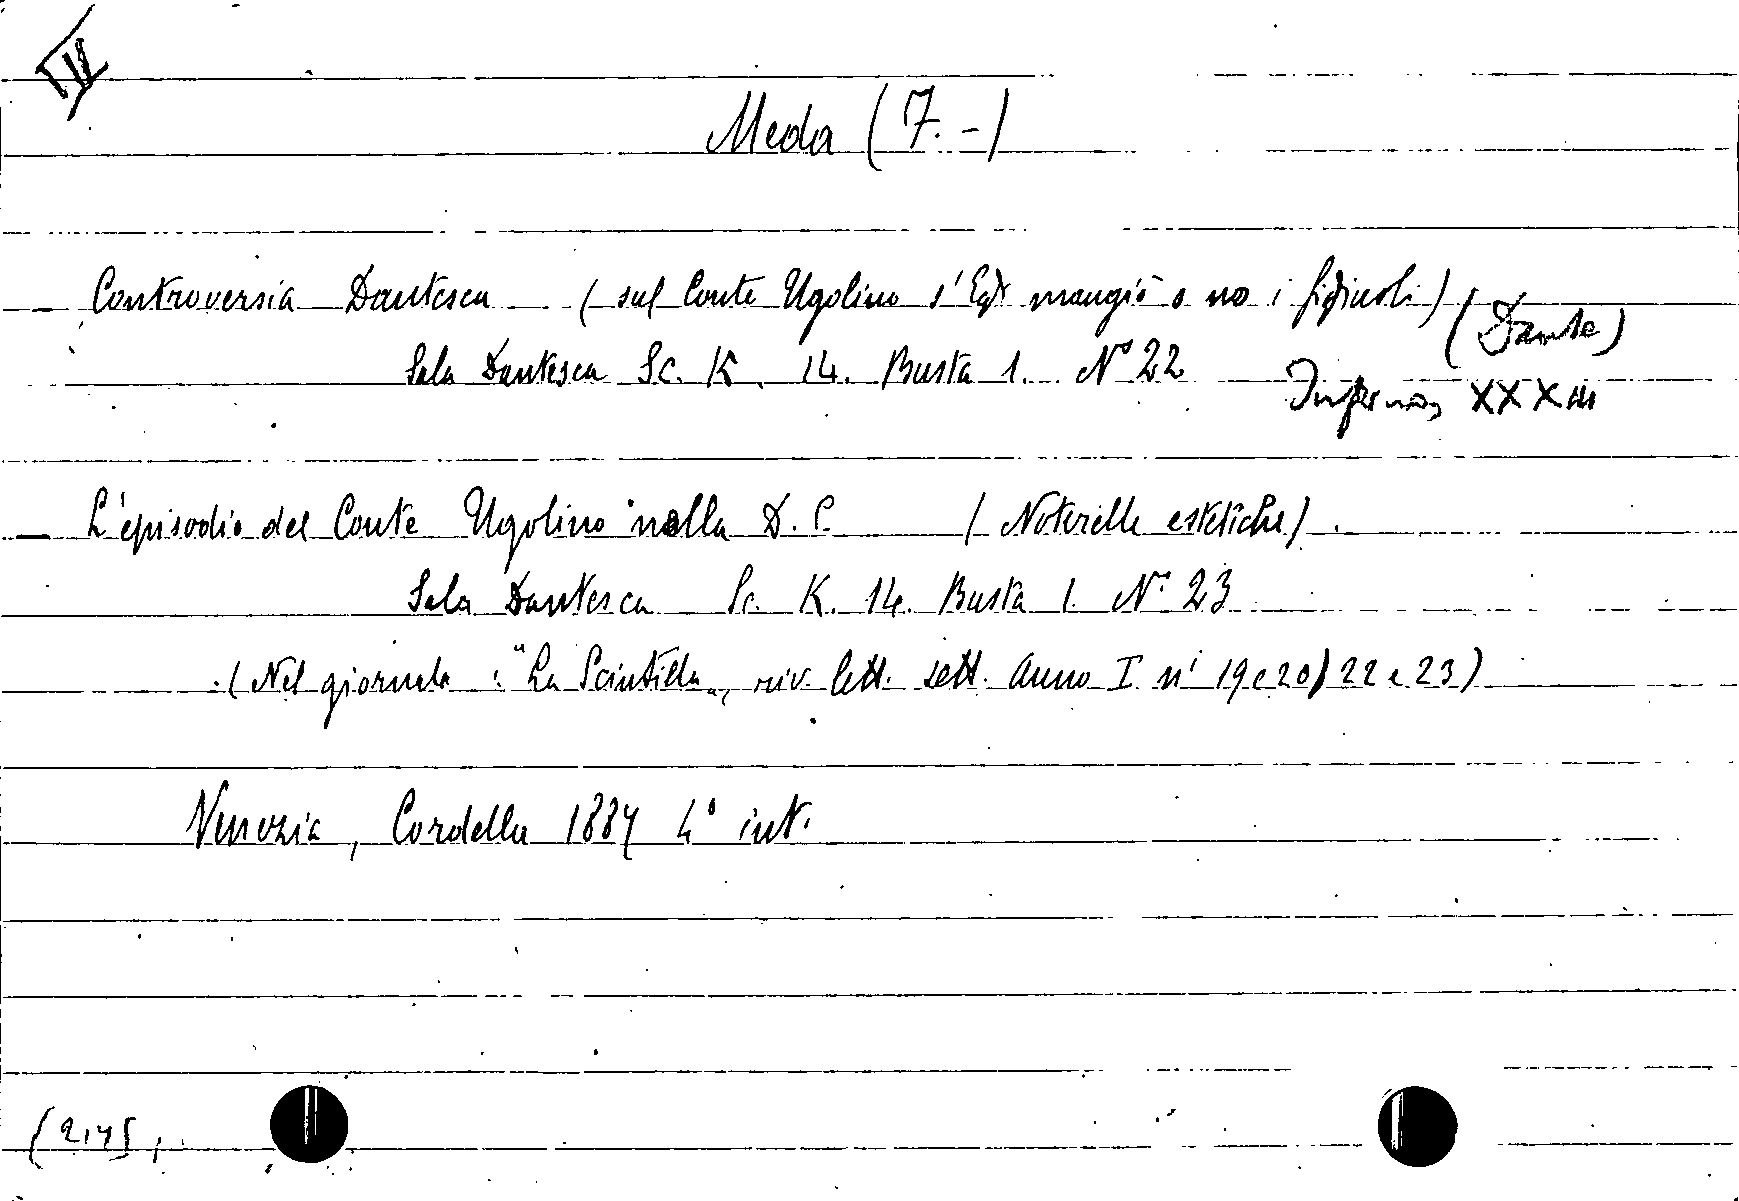 IV
Meda (F. -)
- Controversia Dantesca (sul Conte Ugolino s'Egli mangiò o no i figliuoli) (Dante)
Sala Dantesca Sc. K. 14. Busta 1. N° 22 Inferno, XXXIII
- L'episodio del Conte Ugolino nella D. C. (Noterelle estetiche).
Sala Dantesca Sc. K. 14. Busta 1. N° 23
(Nel giornale: "La Scintilla", riv. lett. sett. Anno I ni 19 e 20, 22 e 23)
Venezia, Cordella 1887 4° int.